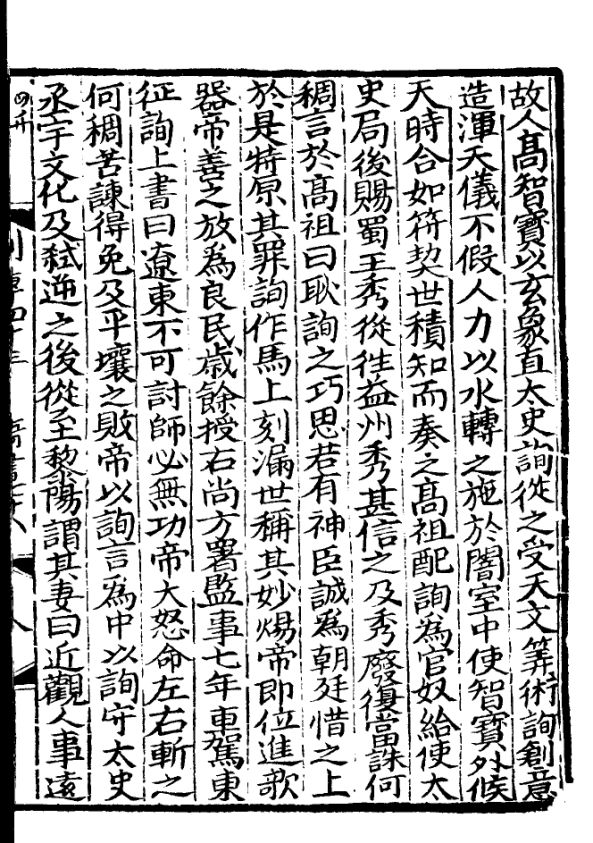 故人髙智寳以玄象直太史詢從之受天文筭術詢創意
造渾天儀不假人力以水轉之施於闇室中使智寳外候
天時合如符契世積知而奏之髙祖配詢為官奴給使太
史局後賜蜀王秀從徃益州秀甚信之及秀廢復當誅何
稠言於髙祖曰耿詢之巧思若有神臣誠為朝廷惜之上
於是特原其罪詢作馬上刻漏世稱其妙煬帝即位進欹
器帝善之放為良民歳餘授右尚方署監事七年車駕東
征詢上書曰遼東不可討師必無功帝大怒命左右斬之
何稠苦諫得免及平壤之敗帝以詢言為中以詢守太史
丞宇文化及弑逆之後從至黎陽謂其妻曰近觀人事遠